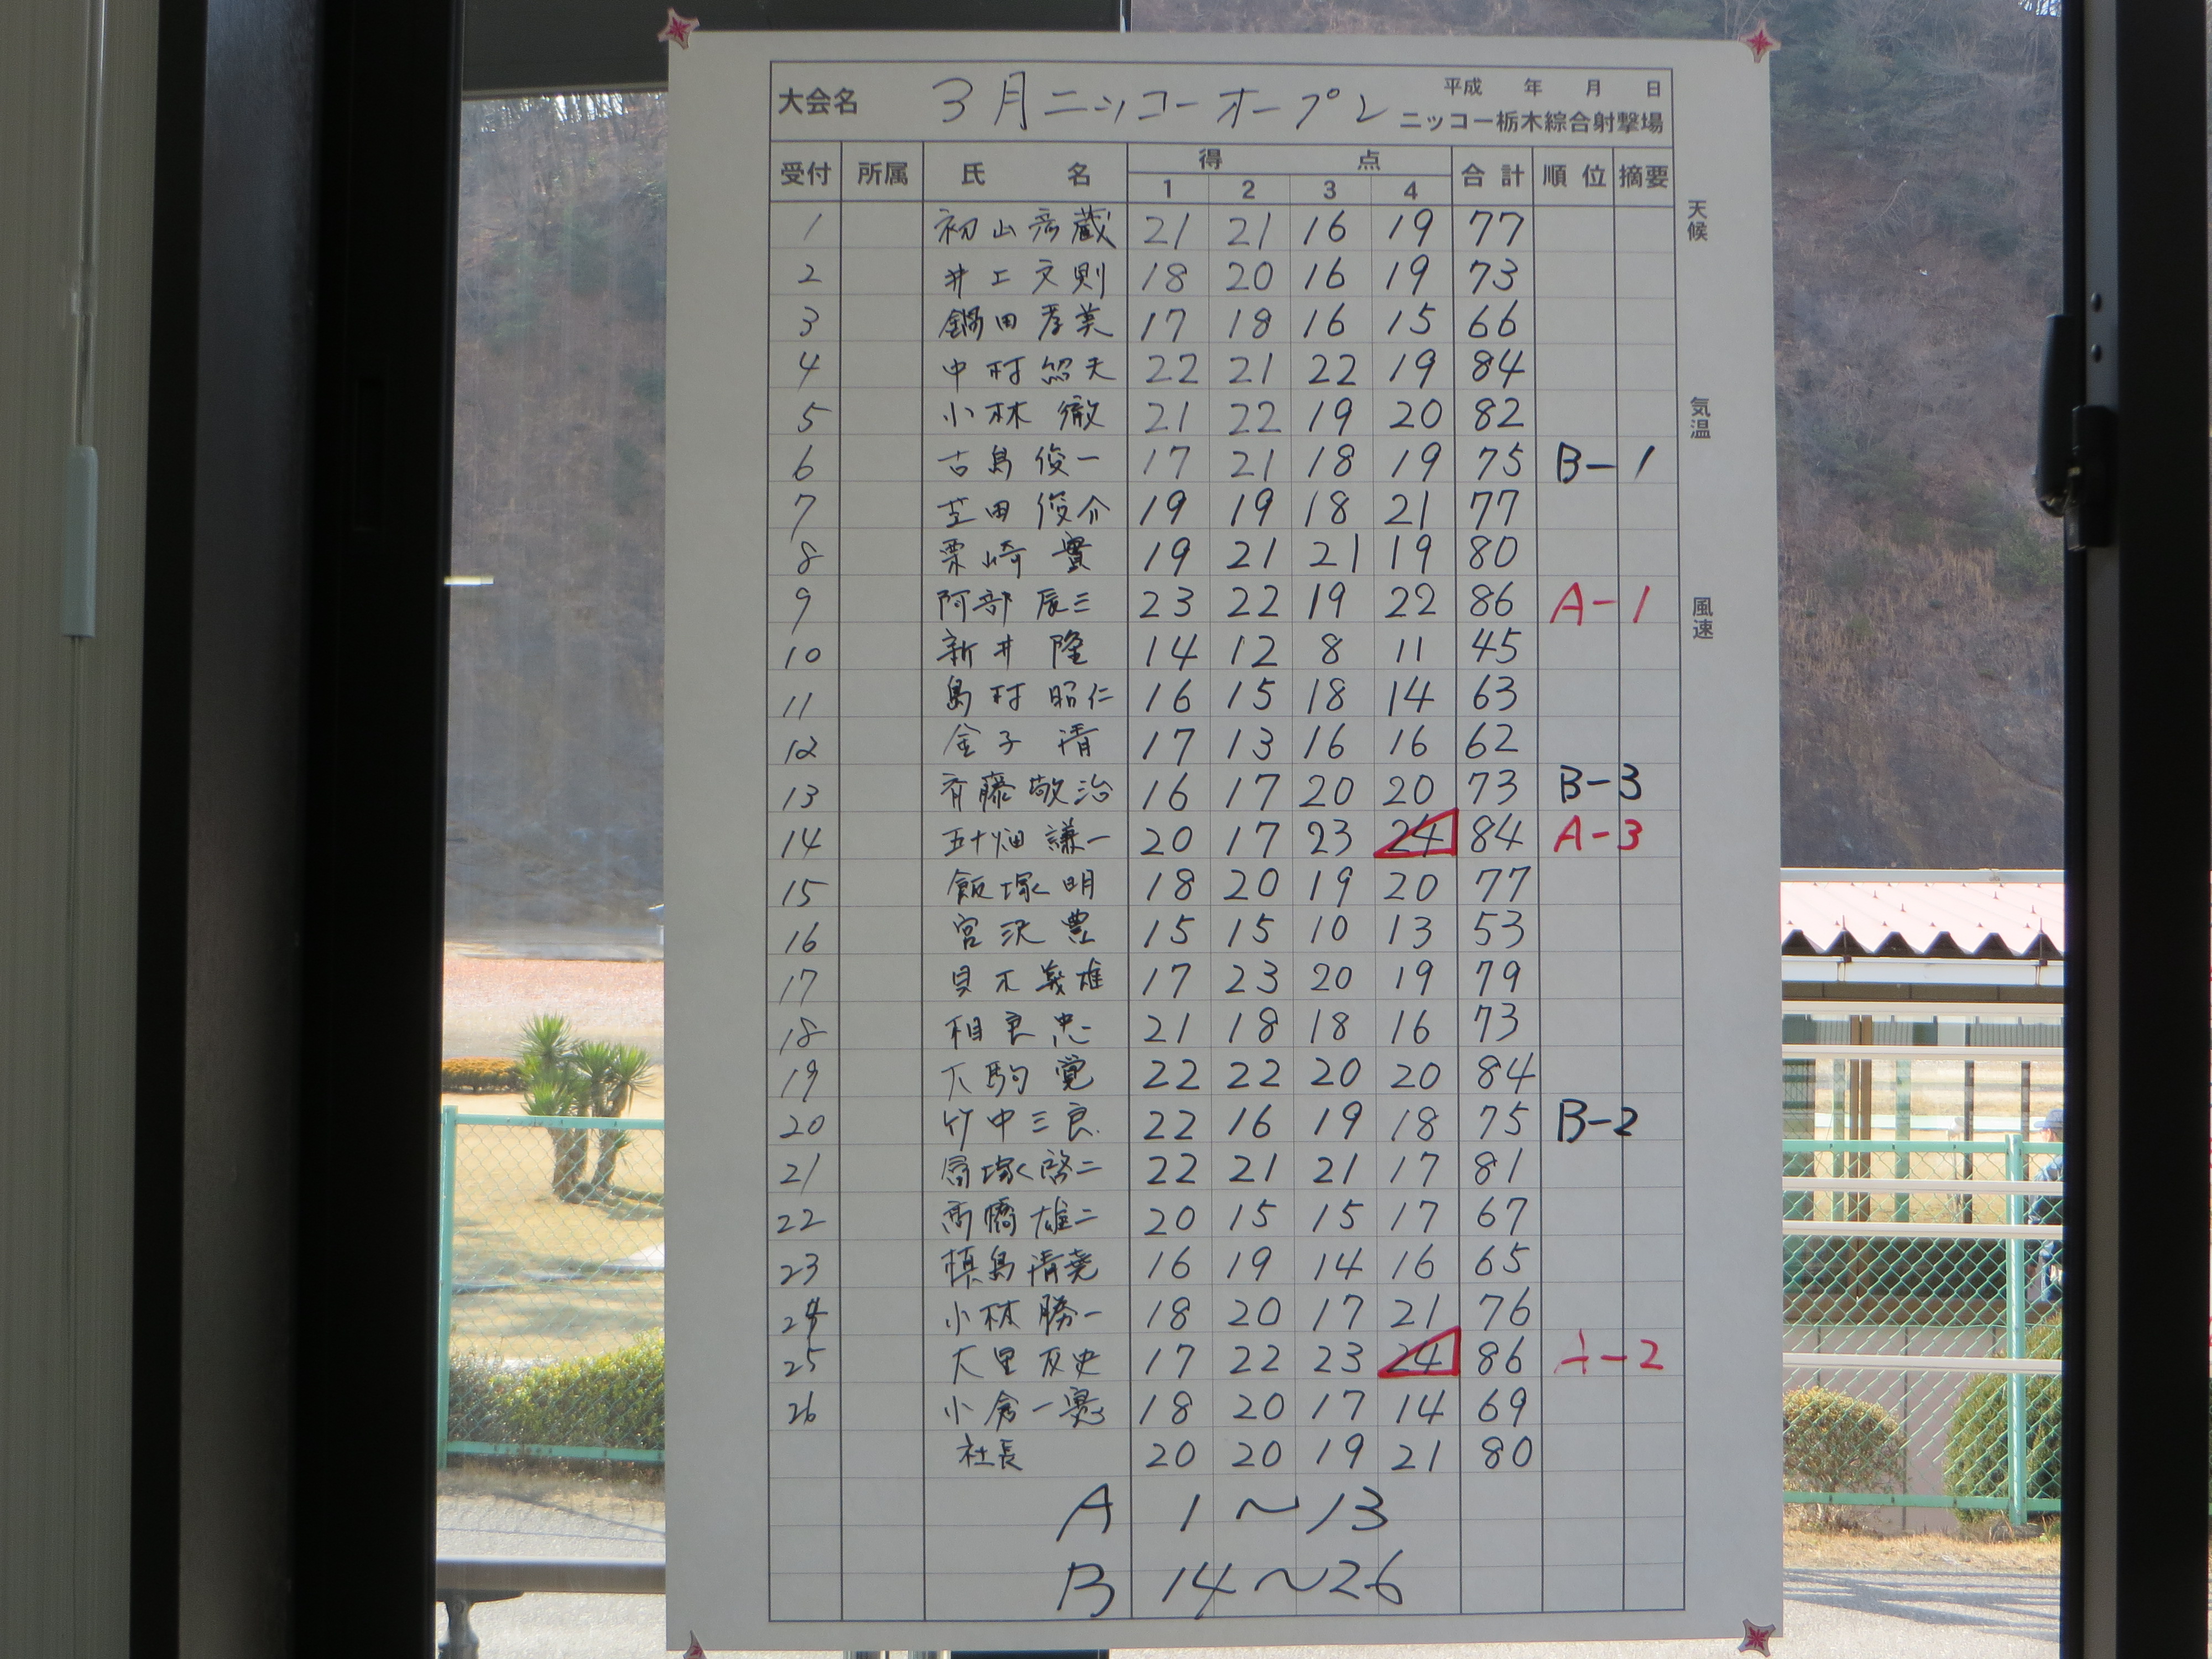 大会名 3月ニッコーオープン 平成 年 月 日
ニッコー栃木綜合射撃場
受付 所属 氏 名 得 点 合計 順位 摘要
1 2 3 4
天候
気温
風速
1 初山彦蔵 21 21 16 19 77
2 井上文則 18 20 16 19 73
3 鍋田孝美 17 18 16 15 66
4 中村紹夫 22 21 22 19 84
5 小林徹 21 22 19 20 82
6 古島俊一 17 21 18 19 75 B-1
7 芝田俊介 19 19 18 21 77
8 栗崎實 19 21 21 19 80
9 阿部辰三 23 22 19 22 86 A-1
10 新井隆 14 12 8 11 45
11 島村昭仁 16 15 18 14 63
12 金子清 17 13 16 16 62
13 斉藤敬治 16 17 20 20 73 B-3
14 五十畑謙一 20 17 23 24 84 A-3
15 飯塚明 18 20 19 20 77
16 宮沢豊 15 15 10 13 53
17 木義雄 17 23 20 19 79
18 相良忠二 21 18 18 16 73
19 大駒覚 22 22 20 20 84
20 竹中三良 22 16 19 18 75 B-2
21 塚啓二 22 21 21 17 81
22 高橋雄二 20 15 15 17 67
23 槙島清尭 16 19 14 16 65
24 小林勝一 18 20 17 21 76
25 大里友史 17 22 23 24 86 A-2
26 小倉一 18 20 17 14 69
社長 20 20 19 21 80
A 1〜13
B 14〜26